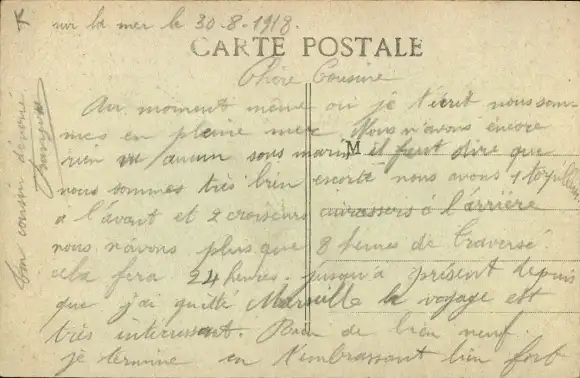 sur la mer le 30-8-1918.
CARTE POSTALE
Chère Cousine
Au moment même où je t'écrit nous som-
mes en pleine mer Nous n'avons encore
rien vu aucun sous marin M il faut dire que
nous sommes très bien escorté nous avons 1 torpilleur
a l'avant et 2 croiseurs cuirassers à l'arrière
nous n'avons plus que 8 heures de traversé.
cela fera 24 heures. jusqu'à présent depuis
que j'ai quitté Marseille le voyage est
très interessant. Rien de bien neuf.
je termine en t'embrassant bien fort
Ton cousin dévoué
François